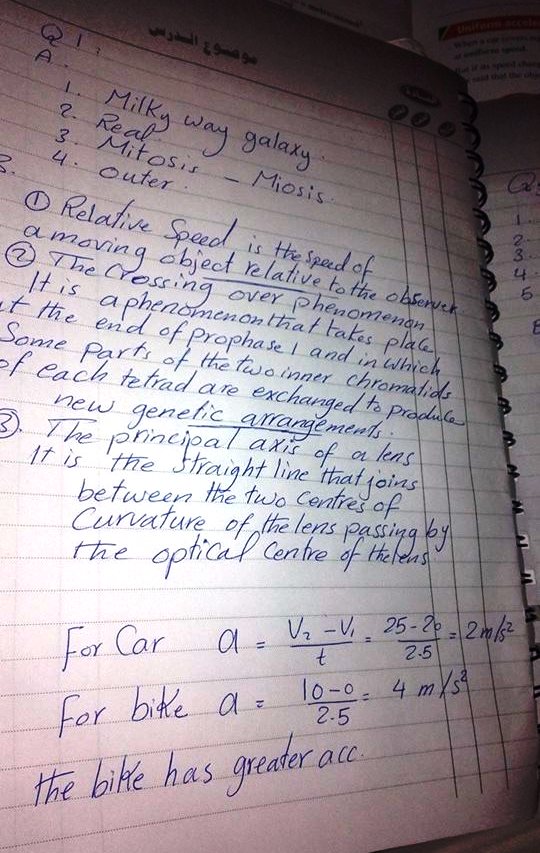 موضوع الدرس
Q 1:
A.
1. Milky way galaxy.
2. Real
3. Mitosis - Miosis.
4. outer.
B.
① Relative Speed is the speed of
a moving object relative to the observer
② The Crossing over phenomenon
It is a phenomenon that takes place
at the end of prophase I and in which
Some parts of the two inner chromatids
of each tetrad are exchanged to produce
new genetic arrangements.
③. The principal axis of a lens
It is the straight line that joins
between the two centres of
Curvature of the lens passing by
the optical Centre of the lens
For Car a = V₂ - V₁ / t = 25-20 / 2.5 = 2 m/s²
For bike a = 10-0 / 2.5 = 4 m/s²
the bike has greater acc.
Uniform accele
When a car covers eq
at uniform speed.
But if its speed chan
said that the obje
Q
1.
2.
3.
4
5